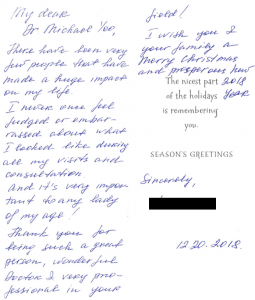 My dear
Dr Michael Yoo,
There have been very
few people that have
made a huge impact
on my life.
I never once feel
judged or embar-
rassed about what
I looked like during
all my visits and
consultation.
And it's very impor
tant to any lady
of my age!
Thank you for
being such a great
person, wonderful
Doctor & very pro-
fessional in your
field!
I wish you &
your family a
Merry Christmas
and prosperous new
2019
Year
The nicest part
of the holidays
is remembering
you.
SEASON'S GREETINGS
Sincerely,
12.20.2018